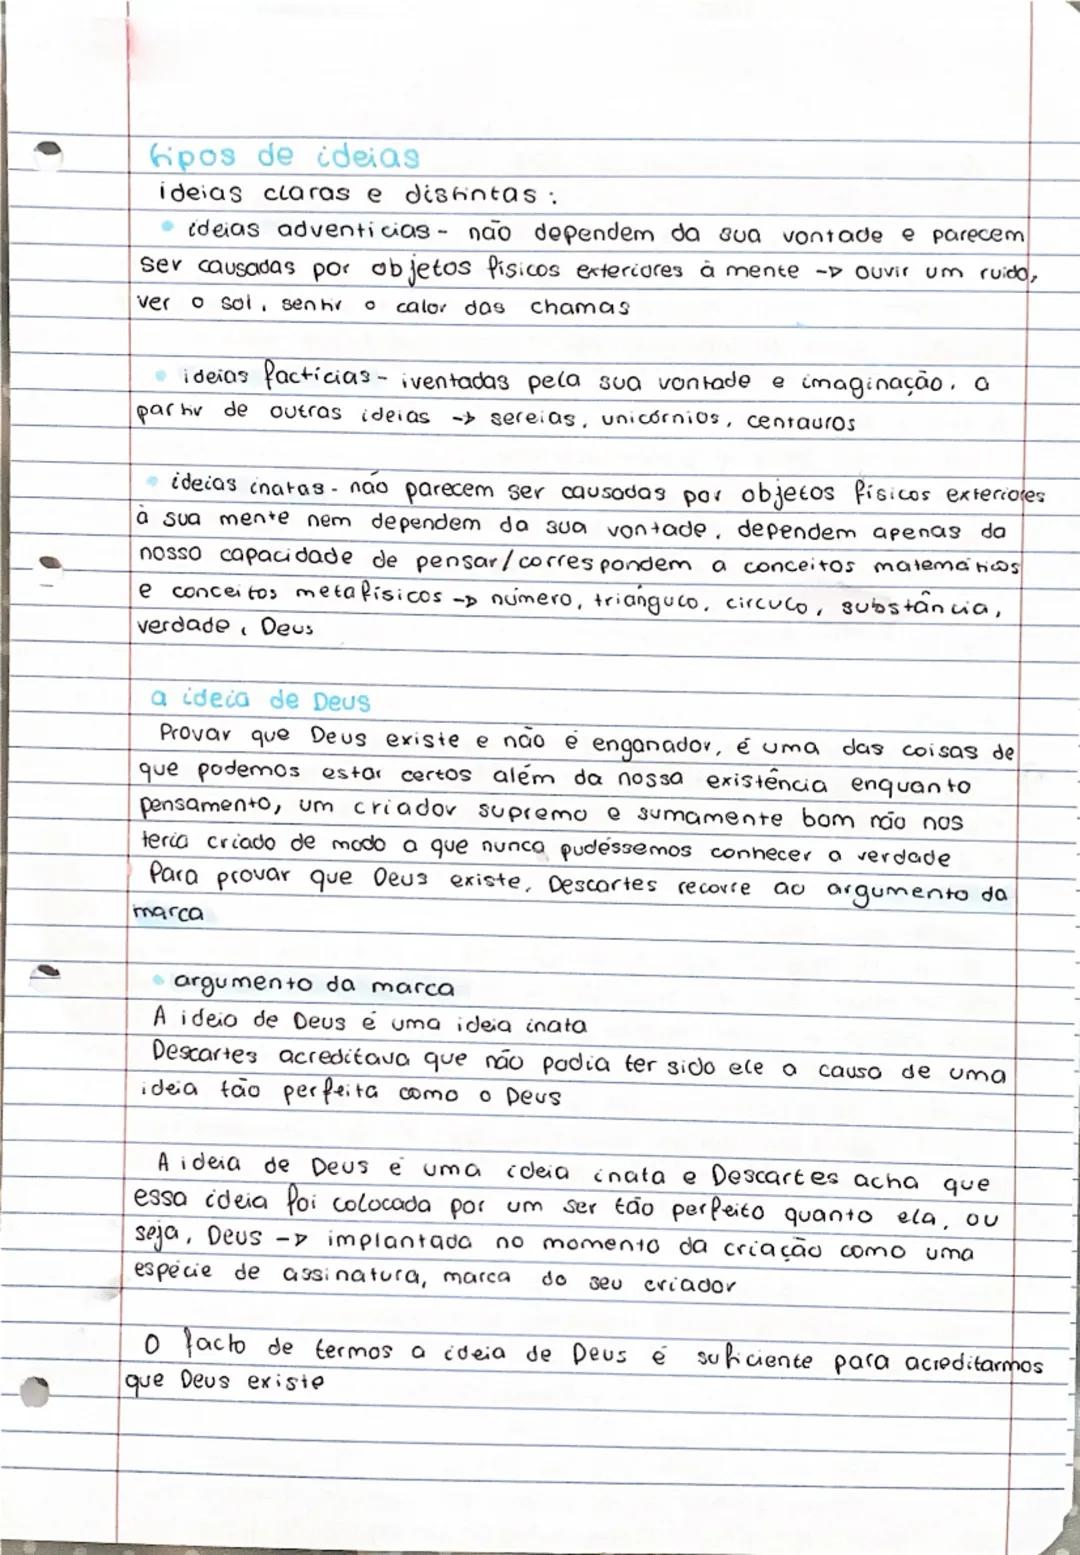 tipos de ideias
ideias claras e distintas:
• ideias adventicias - não dependem da sua vontade e parecem
ser causadas por objetos físicos exteriores à mente -> ouvir um ruido,
ver o sol, sentir o calor das chamas
• ideias factícias - iventadas pela sua vontade e imaginação, a
partir de outras ideias -> sereias, unicórnios, centauros
• ideias inatas - não parecem ser causadas por objetos físicos exteriores
à sua mente nem dependem da sua vontade, dependem apenas da
nossa capacidade de pensar/correspondem a conceitos matemáticos
e conceitos metafísicos -> número, triângulo, circulo, substância,
verdade, Deus
a ideia de Deus
Provar que Deus existe e não é enganador, é uma das coisas de
que podemos estar certos além da nossa existência enquanto
pensamento, um criador supremo e sumamente bom não nos
teria criado de modo a que nunca pudéssemos conhecer a verdade
Para provar que Deus existe, Descartes recorre ao argumento da
marca
• argumento da marca
A ideia de Deus é uma ideia inata
Descartes acreditava que não podia ter sido ele a causa de uma
ideia tão perfeita como o Deus
A ideia de Deus é uma ideia inata e Descartes acha que
essa ideia foi colocada por um ser tão perfeito quanto ela, ou
seja, Deus -> implantada no momento da criação como uma
espécie de assinatura, marca do seu criador
O facto de termos a ideia de Deus é suficiente para acreditarmos
que Deus existe